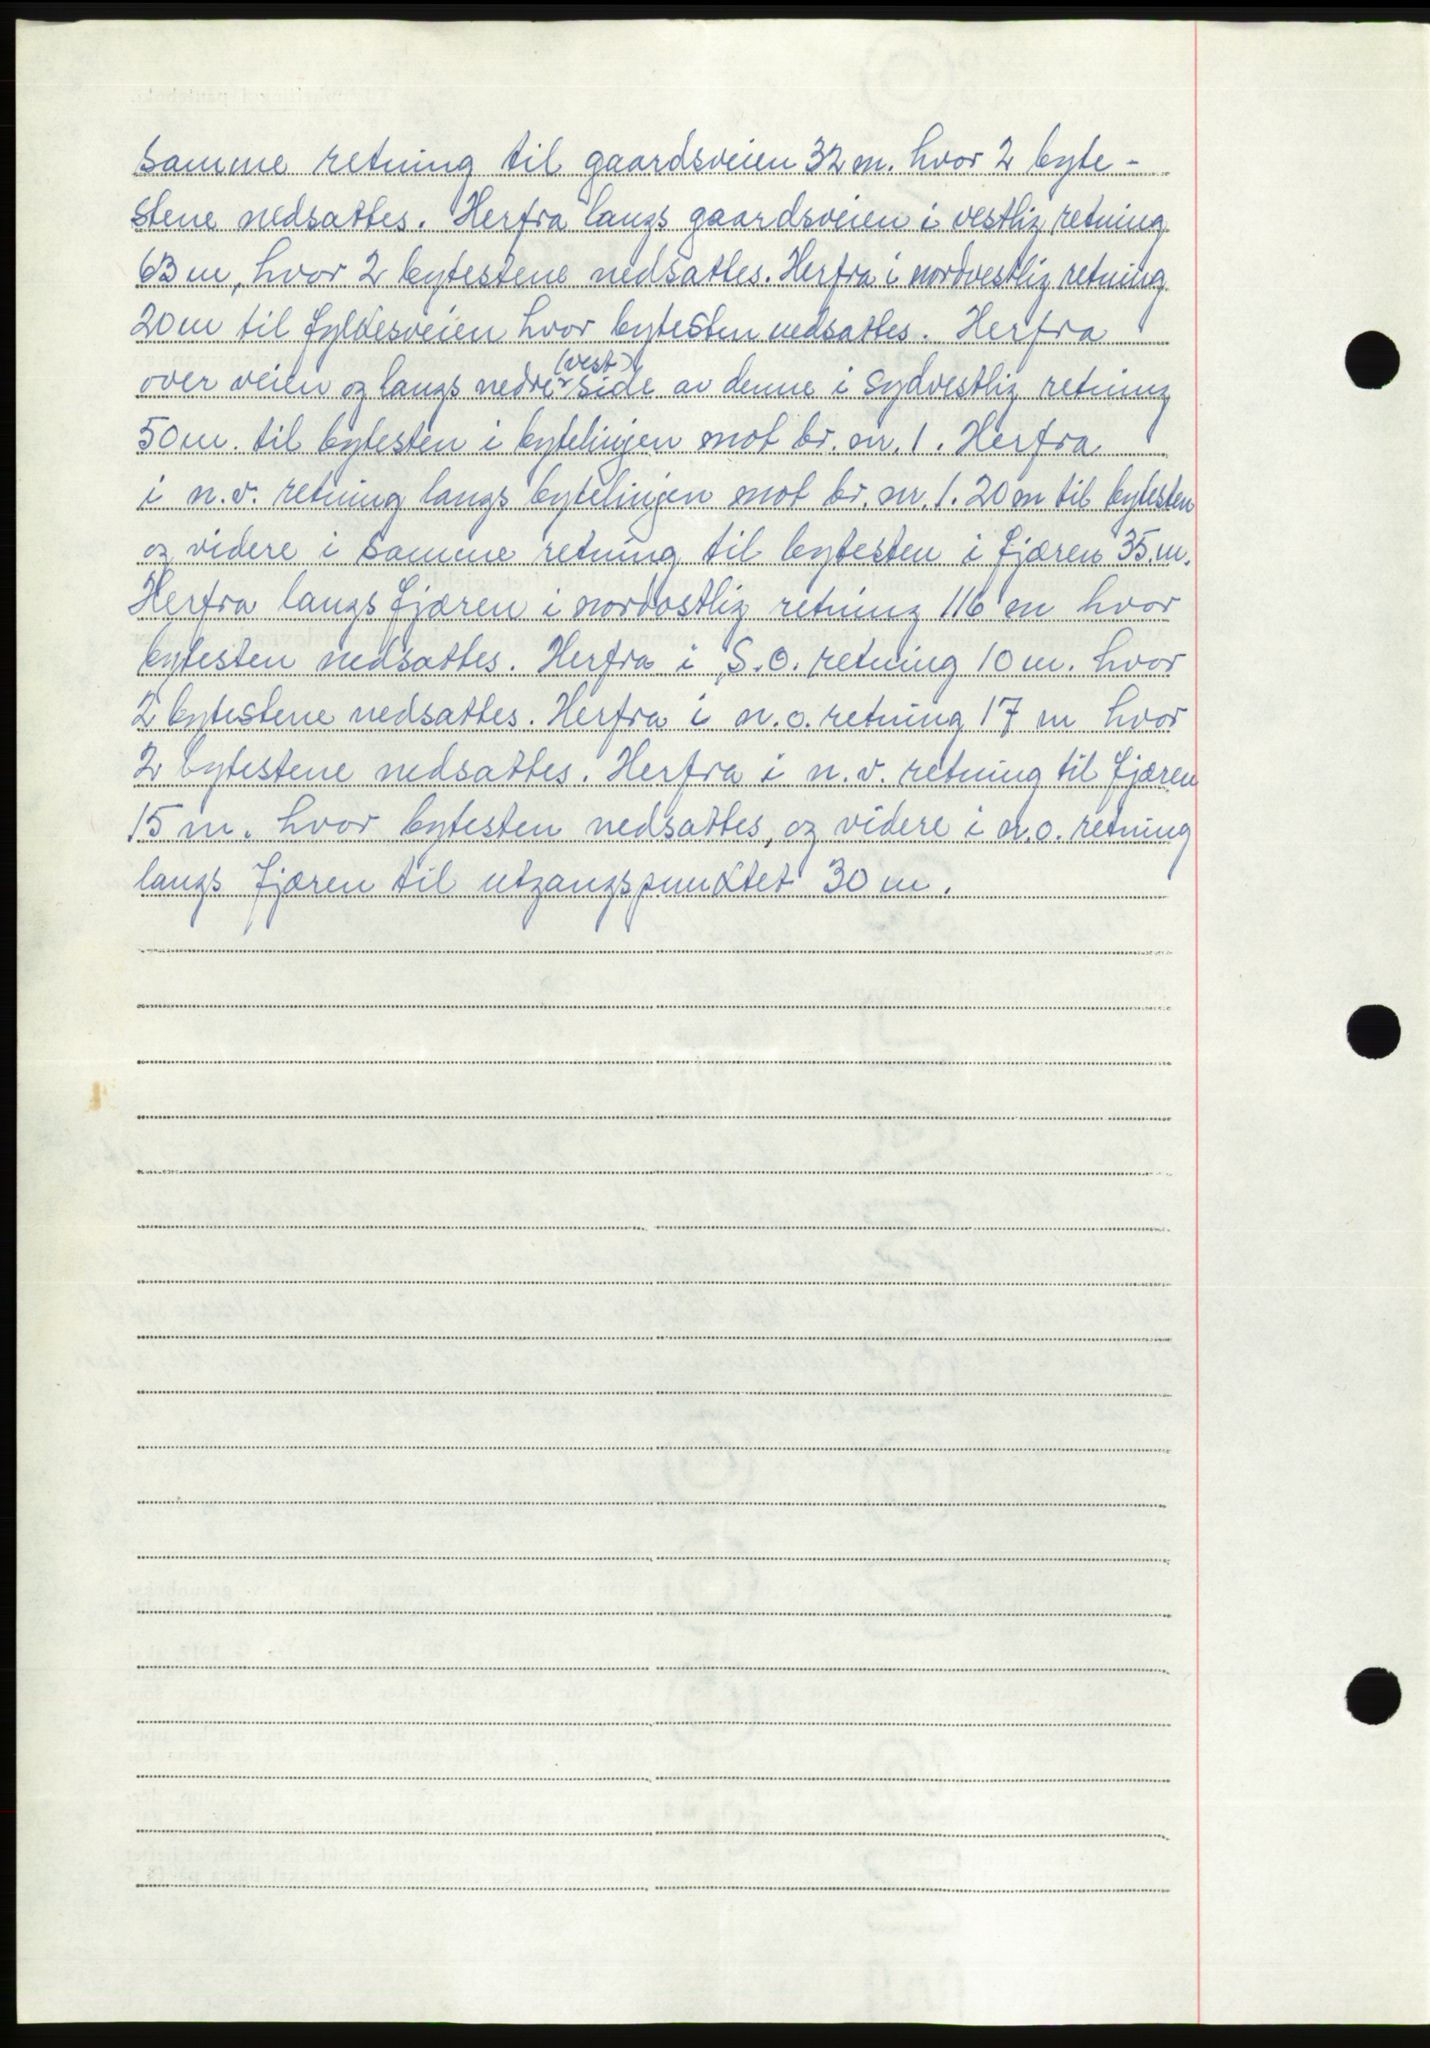 samme retning til gaardsveien 32 m. hvor 2 byte-
stene nedsattes. Herfra langs gaardsveien i vestlig retning
63 m, hvor 2 bytestene nedsattes. Herfra i nordvestlig retning
20 m til fylkesveien hvor bytesten nedsattes. Herfra
(vest)
over veien og langs nedre side av denne i sydvestlig retning
50 m. til bytesten i bytelinjen mot br. nr. 1. Herfra
i n.v. retning langs bytelinjen mot br. nr. 1. 20 m til bytesten
og videre i samme retning til bytesten i fjæren 35.m.
Herfra langs fjæren i nordostlig retning 116 m hvor
bytesten nedsattes. Herfra i S.O. retning 10 m. hvor
2 bytestene nedsattes. Herfra i n.o. retning 17 m hvor
2 bytestene nedsattes. Herfra i n.v. retning til fjæren
15 m. hvor bytesten nedsattes, og videre i n.o. retning
langs fjæren til utgangspunktet 30 m.